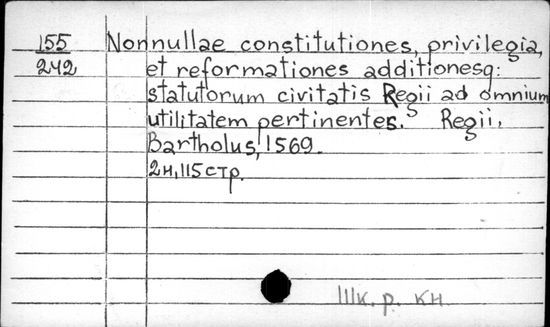 155 Nonnullae constitutiones, privilegia,
242 et reformationes additionesq:
statutorum civitatis Regii ad omnium
utilitatem pertinentes. Regii,
Bartholus, 1569.
2н, 115 стр.
Шк. р. кн.